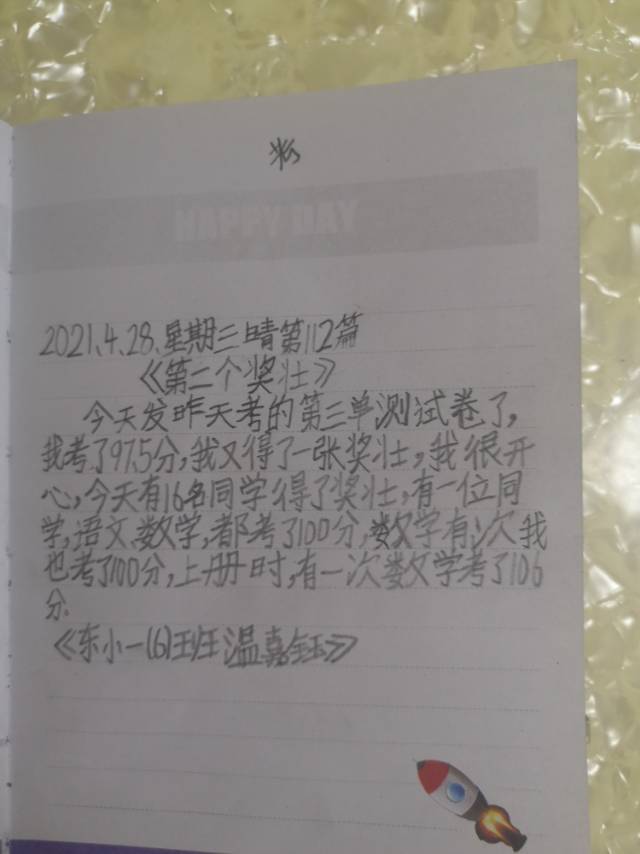 HAPPY DAY
2021.4.28.星期三晴第112篇
《第二个奖壮》
今天发昨天考的第三单测试卷了,
我考了97.5分,我又得了一张奖壮,我很开
心,今天有16名同学得了奖壮,有一位同
学,语文、数学,都考了100分,数学有次我
也考了100分,上册时,有一次数学考了106
分.
《东小一(6)班温嘉钰》